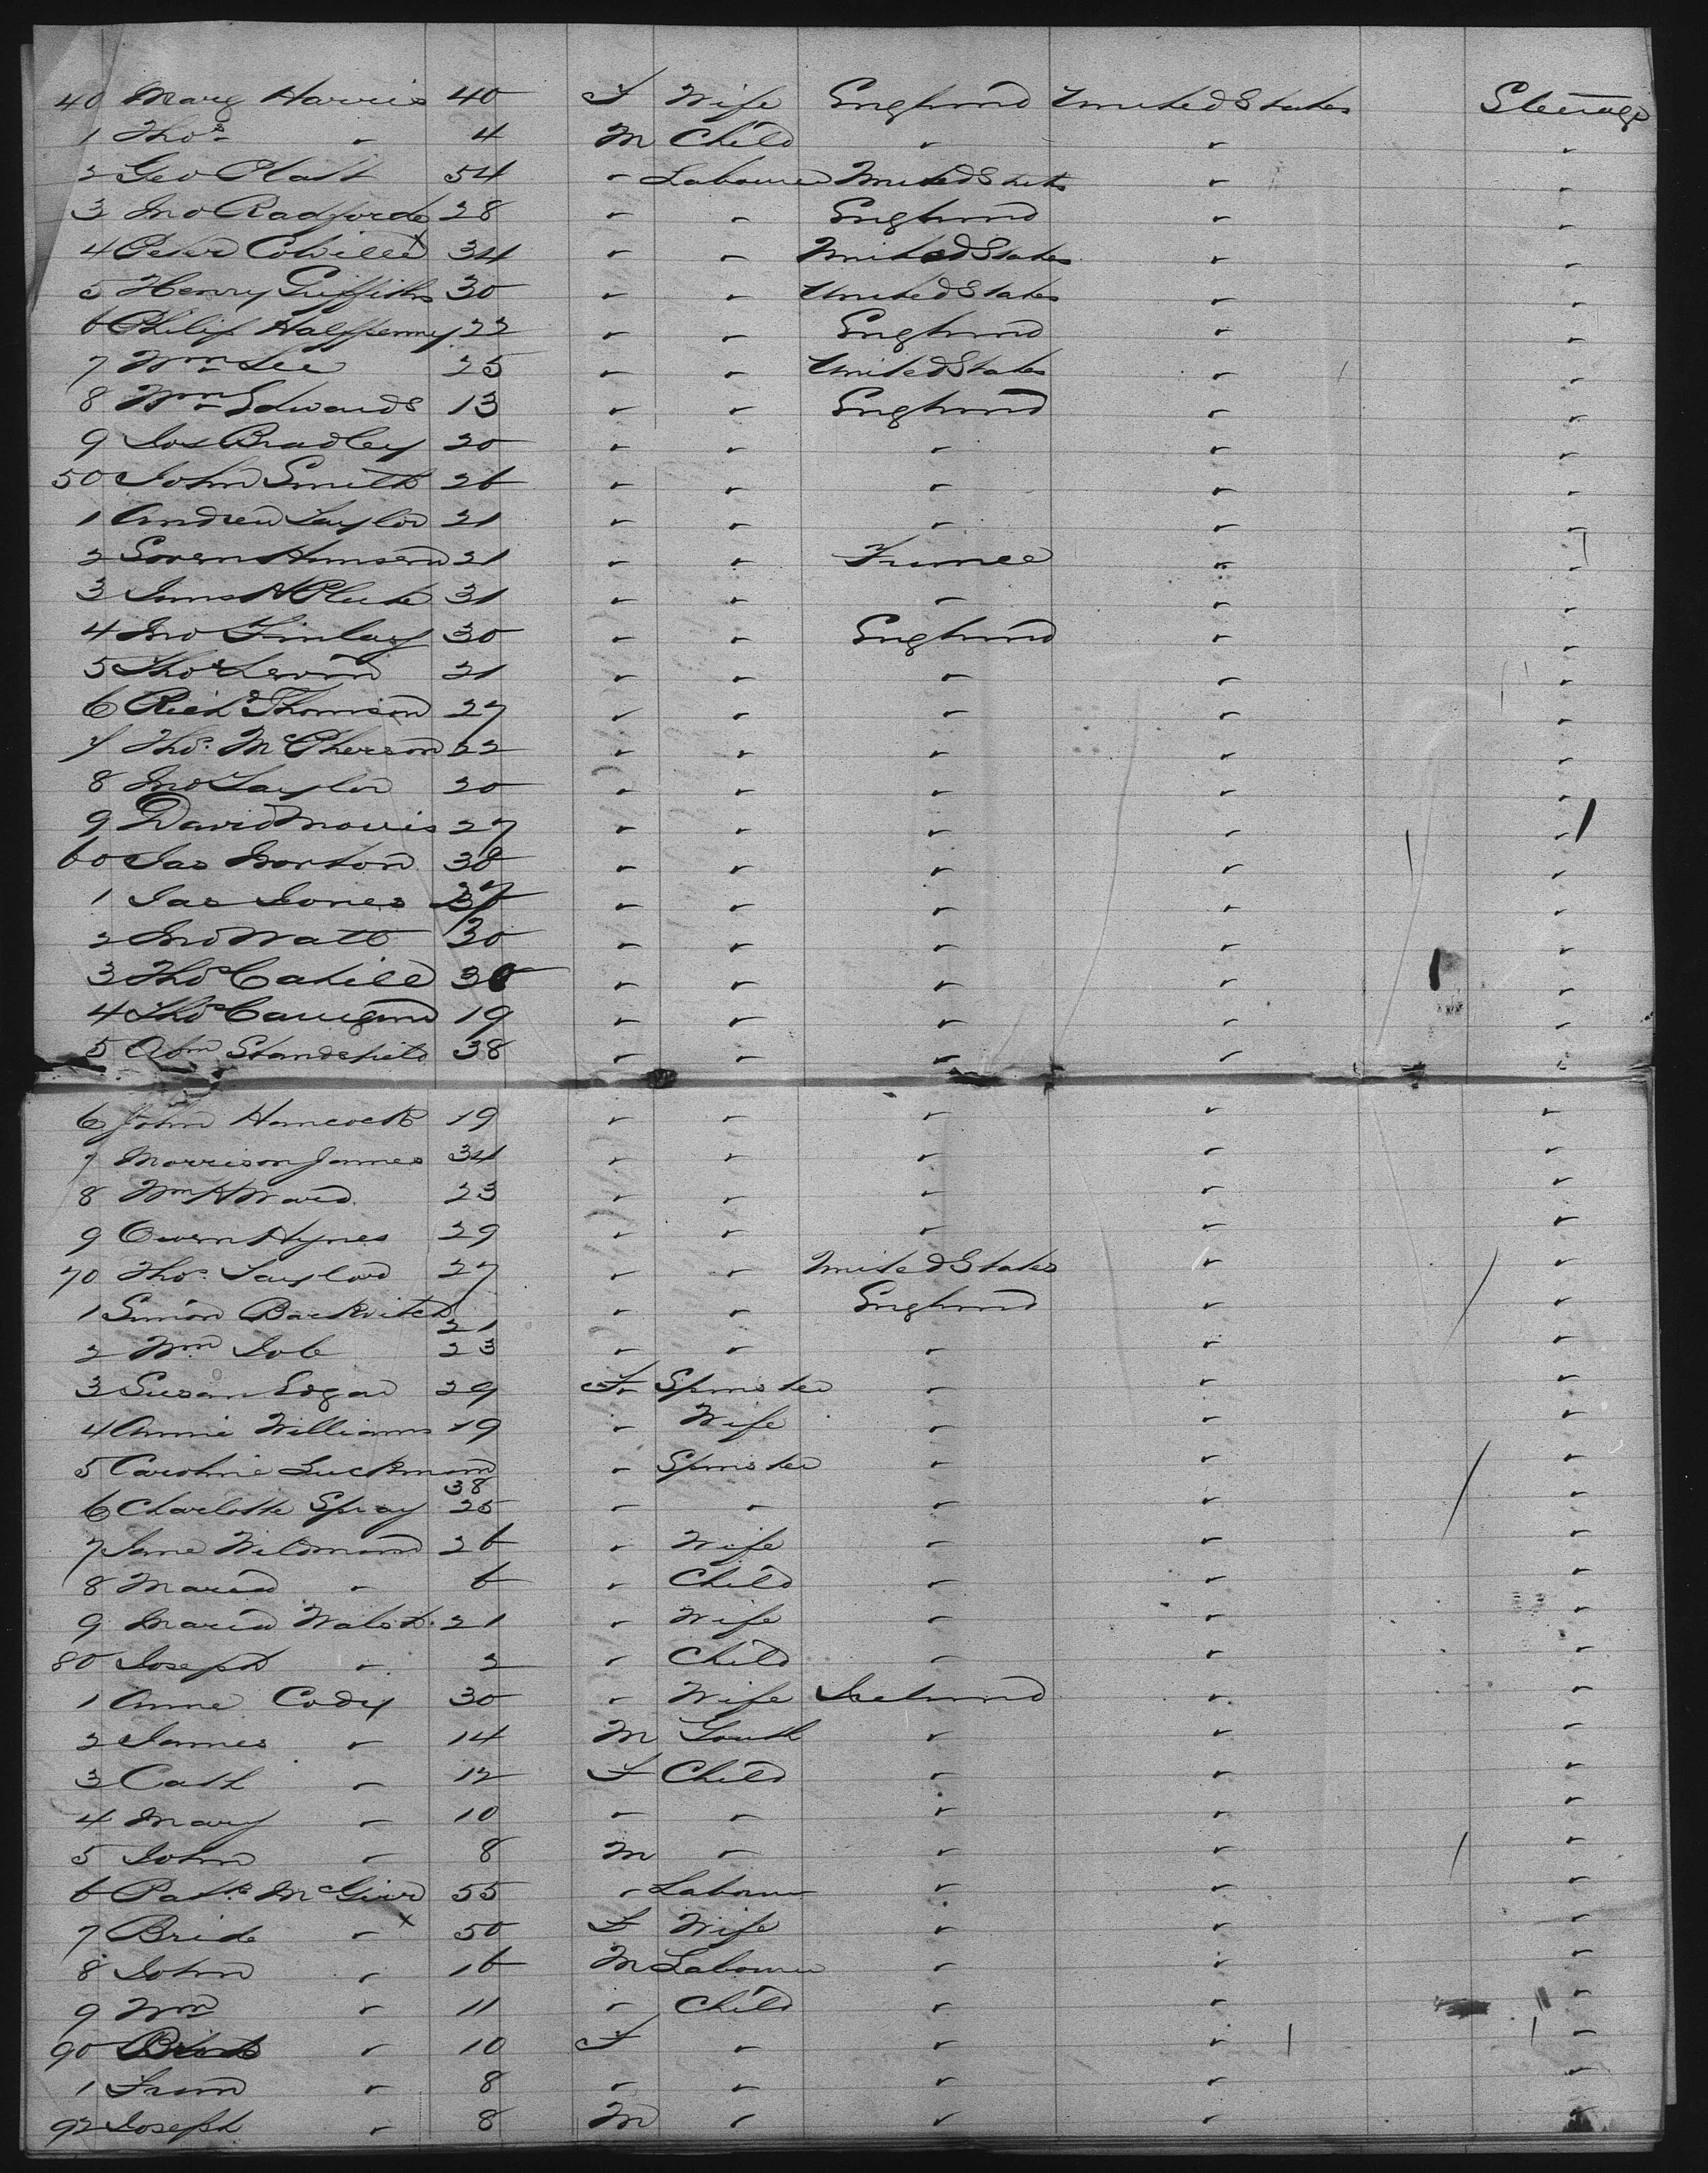 40 Marg Harris 40 F Wife England United States Steerage
1 Thos " 4 M Child " " "
2 Geo Platt 54 " Labourer United States " "
3 Jno Radford 28 " " England " "
4 Peter Colville 34 " " United States " "
5 Henry Griffiths 30 " " United States " "
6 Philip Halfpenny 22 " " England " "
7 Wm Lee 25 " " United States " "
8 Wm Edwards 13 " " England " "
9 Jos Bradley 20 " " " " "
50 John Smith 26 " " " " "
1 Andrew Taylor 21 " " " " "
2 Soren Hansen 21 " " France " "
3 31 " " " " "
4 Jno Finlay 30 " " England " "
5 Thos 21 " " " " "
6 Richd Thomson 27 " " " " "
7 Thos. McPherson 22 " " " " "
8 Jno Taylor 20 " " " " "
9 David Morris 27 " " " " "
60 Jas Morton 30 " " " " "
1 Jas Jones " " " " "
2 Jno Watt 30 " " " " "
3 Thos Cahill 30 " " " " "
4 Thos Carrigan 19 " " " " "
5 Abm Standefield 38 " " " " "
6 John Hancock 19 " " " " "
7 Morrison James 34 " " " " "
8 Wm H Ward 23 " " " " "
9 Owen Hynes 29 " " " " "
70 Thos. Taylor 27 " " United States " "
1 Simon 21 " " England " "
2 Wm Job 23 " " " " "
3 Susan Edgar 29 F Spinster " " "
4 Annie Williams 19 " Wife " " "
5 Caroline Luckman 38 " Spinster " " "
6 Charlotte Spray 25 " " " " "
7 Jane Wildman 26 " Wife " " "
8 Maria " 6 " Child " " "
9 Maria Walsh 21 " Wife " " "
80 Joseph " 2 " Child " " "
1 Anne Cody 30 " Wife Ireland " "
2 James " 14 M Youth " " "
3 Cath " 12 F Child " " "
4 Mary " 10 " " " " "
5 John " 8 M " " " "
6 Patk 55 " Labourer " " "
7 Bride " x 50 F Wife " " "
8 John " 16 M Labourer " " "
9 Wm " 11 " Child " " "
90 " 10 F " " " "
1 " 8 " " " " "
92 Joseph " 8 M " " " "